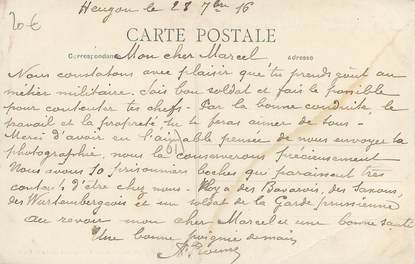 20€
le 28 7bre 16
CARTE POSTALE
Correspondance
Adresse
Mon cher Marcel
Nous constatons avec plaisir que tu prends goût au
métier militaire. Sois bon soldat et fais le possible
pour contenter tes chefs. Par la bonne conduite, le
travail et la propreté, tu te feras aimer de tous.
Merci d'avoir eu l'aimable pensée de nous envoyer ta
photographie, nous la conserverons précieusement
Nous avons 50 prisonniers boches qui paraissent très
contents d'être chez nous. Il y a des Bavarois, des Saxons,
des Wurtembergeois et un soldat de la Garde prussienne
Au revoir mon cher Marcel et une bonne santé
Une bonne poignée de main